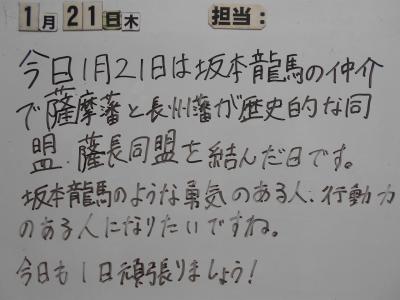 1月21日木 担当:
今日1月21日は坂本龍馬の仲介
で薩摩藩と長州藩が歴史的な同
盟、薩長同盟を結んだ日です。
坂本龍馬のような勇気のある人、行動力
のある人になりたいですね。
今日も1日頑張りましょう!